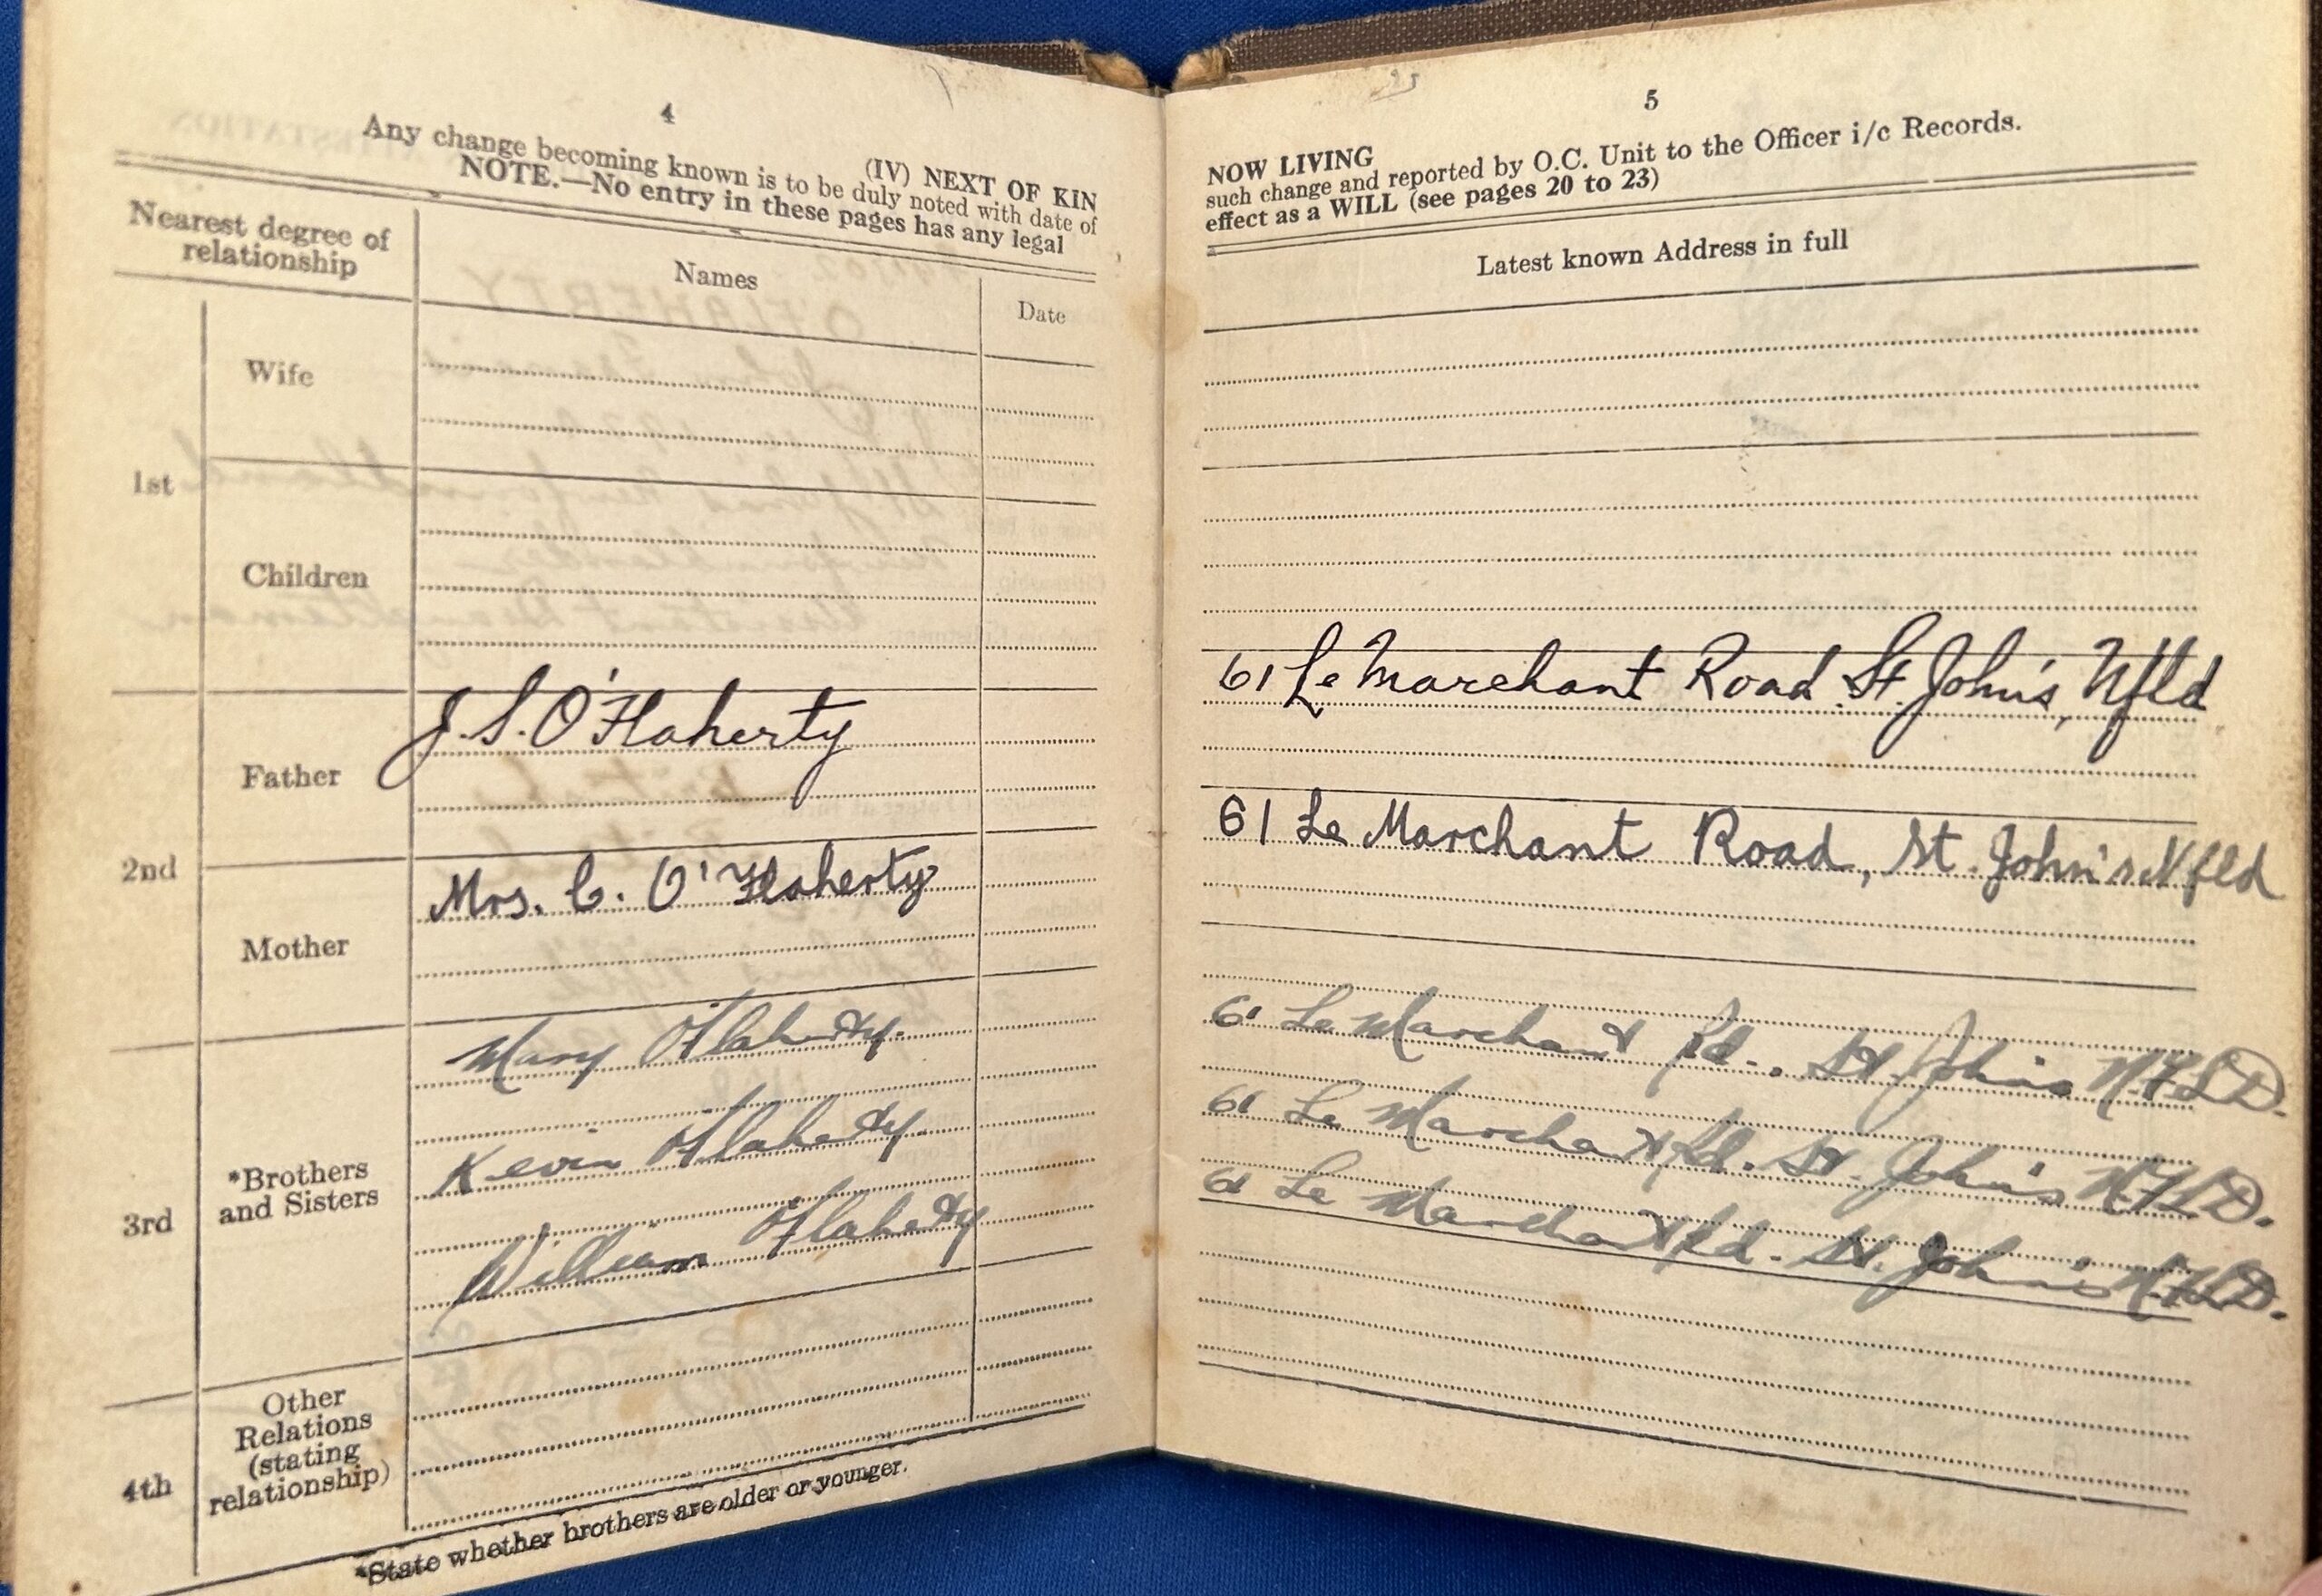 4
(IV) NEXT OF KIN
Any change becoming known is to be duly noted with date of
NOTE.—No entry in these pages has any legal
Nearest degree of
relationship
Names
Date
1st
Wife
Children
2nd
Father
J. S. O'Flaherty
Mother
Mrs. C. O'Flaherty
3rd
*Brothers
and Sisters
Mary O'Flaherty.
Kevin O'Flaherty.
William O'Flaherty
4th
Other
Relations
(stating
relationship)
*State whether brothers are older or younger.
5
NOW LIVING
such change and reported by O.C. Unit to the Officer i/c Records.
effect as a WILL (see pages 20 to 23)
Latest known Address in full
61 Le Marchant Road St. John's, Nfld
61 Le Marchant Road, St. John's Nfld
61 Le Marchant Rd., St. John's N.F.L.D.
61 Le Marchant Rd. St. John's N.F.L.D.
61 Le Marchant Rd. St. John's N.F.L.D.